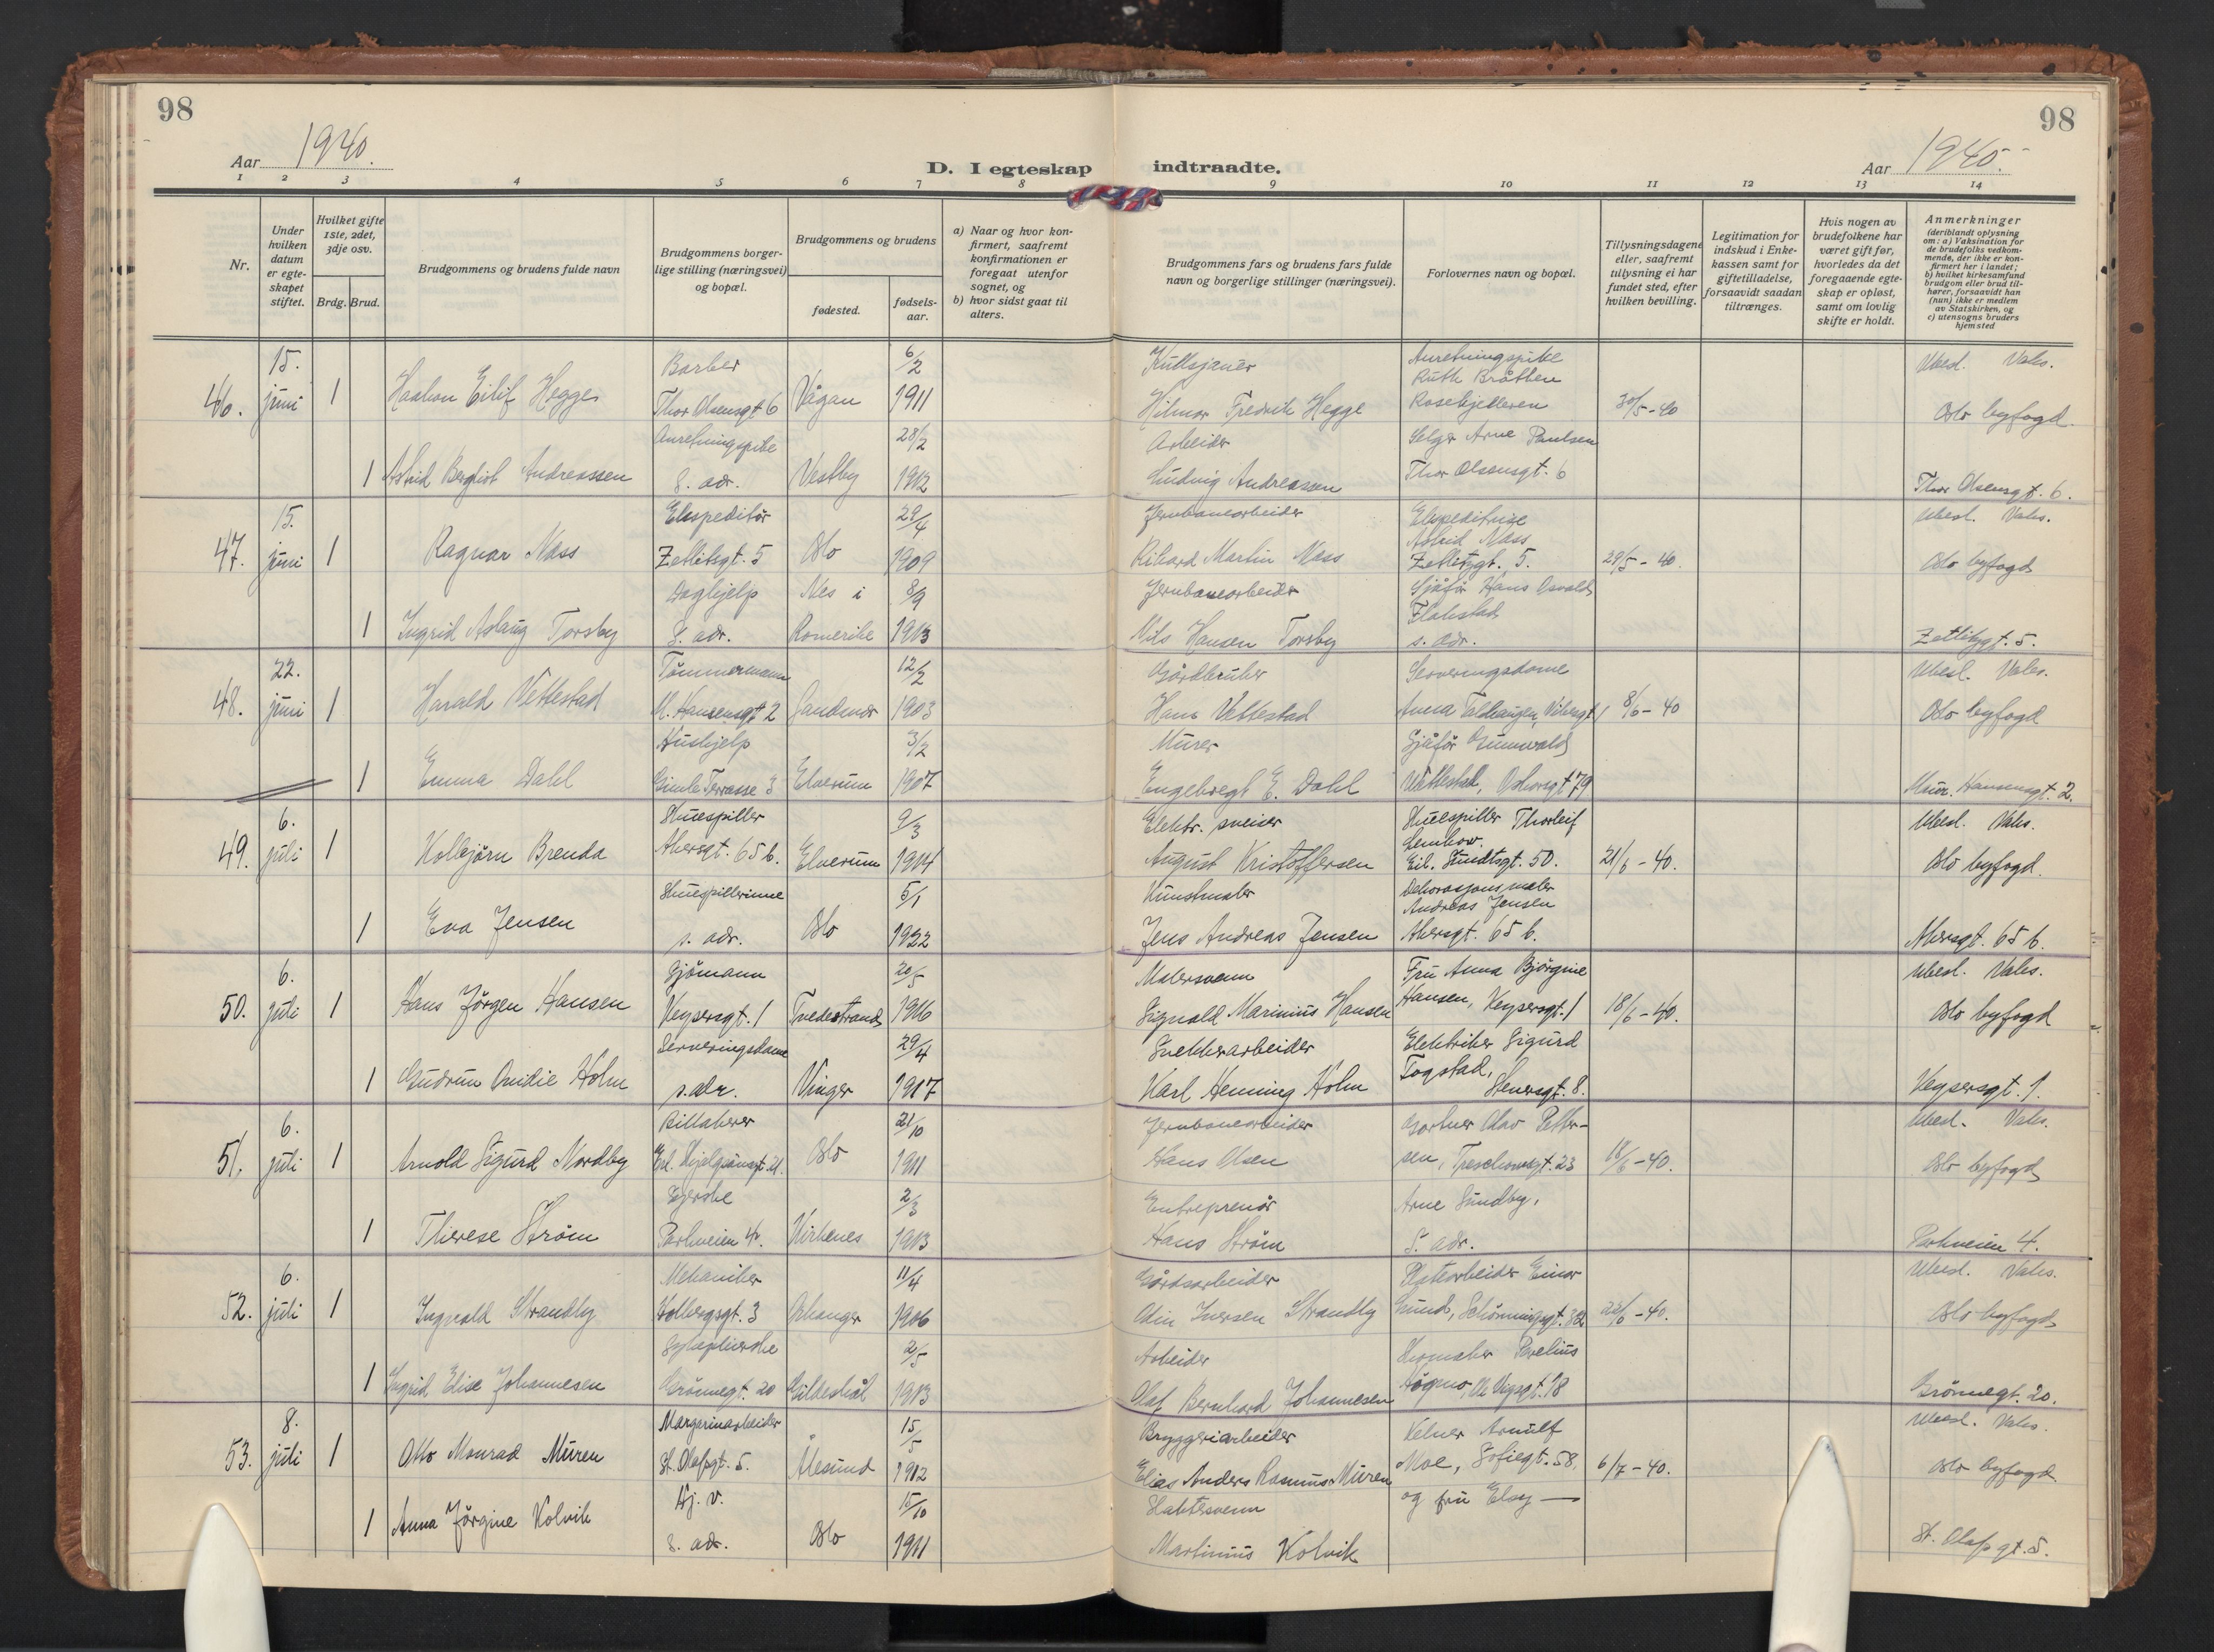 98
98
Aar 1940.
D. I egteskap indtraadte.
Aar 1940.
1 2 3 4 5 6 7 8 9 10 11 12 13 14
Nr.
Under hvilken datum er egteskapet stiftet.
Hvilket gifte 1ste, 2det, 3dje osv.
Brdg. Brud.
Brudgommens og brudens fulde navn
Brudgommens borgerlige stilling (næringsvei) og bopæl.
Brudgommens og brudens
fødested.
fødselsaar.
a) Naar og hvor konfirmert, saafremt konfirmationen er foregaat utenfor sognet, og
b) hvor sidst gaat til alters.
Brudgommens fars og brudens fars fulde navn og borgerlige stillinger (næringsvei).
Forlovernes navn og bopæl.
Tillysningsdagene eller, saafremt tillysning ei har fundet sted, efter hvilken bevilling.
Legitimation for indskud i Enkekassen samt for giftetilladelse, forsaavidt saadan tiltrænges.
Hvis nogen av brudefolkene har været gift før, hvorledes da det foregaaende egteskap er opløst, samt om lovlig skifte er holdt.
Anmerkninger (deriblandt oplysning om: a) Vaksination for de brudefolks vedkommende, der ikke er konfirmert her i landet; b) hvilket kirkesamfund brudgom eller brud tilhører, forsaavidt han (hun) ikke er medlem av Statskirken, og c) utensogns bruders hjemsted
15. Barber 6/2 Kullsjauer Anretningspike Ubesl. Vaks.
Ruth Bråthen
46. juni 1 Haakon Eilif Hegge Thor Olsensgt 6 Vågan 1911 Hilmar Fredrik Hegge 30/5-40 Oslo byfogd.
Anretningspike 28/2 Arbeider Selger Arne Paulsen
1 Astrid Bergliot Andreassen s. adr. Vestby 1912 Ludvig Andreassen Thor Olsensgt. 6 Thor Olsensgt. 6.
15. Ekspeditør 29/4 Jernbanearbeider Ekspeditrise Ubesl. Vaks.
Astrid Næss
47. juni 1 Ragnar Næss Zetlitsgt. 5 Oslo 1909 Rikard Martin Næss Zetlitzgt. 5. 29/5-40. Oslo byfogd
Daghjelp Nes i 8/9 Jernbanearbeider Sjåfør Hans Osvald
Flakstad
1 Ingrid Aslaug Torsby s. adr. Romerike 1913 Nils Hansen Torsby s. adr. Zetlitzgt. 5.
22. Tømmermann 12/2 Gårdbruker Serveringsdame Ubesl. Vaks.
48. juni 1 Harald Vettestad M. Hansensgt 2 1903 Hans Vettestad Anna 8/6-40 Oslo byfogd
Hushjelp 3/2 Murer Sjåfør Gunnvald
1 Emma Dahl Gimle Terrasse 3 Elverum 1907 Engebregt E. Dahl Vettestad, 79 Maur. Hansensgt. 2.
6. Skuespiller 9/3 Elektr. sveiser Skuespiller Thorleif Ubesl. Vaks.
49. juli 1 Kolbjørn Brenda Akersgt. 65 b. Elverum 1914 August Kristoffersen Eil. Sundtsgt. 50. 21/6-40. Oslo byfogd.
Skuespillerinne 5/1 Kunstmaler Dekorasjonsmaler
Andreas Jensen
1 Eva Jensen s. adr. Oslo 1922 Jens Andreas Jensen Akersgt. 65 b. Akersgt. 65 b.
6. Sjømann 20/5 Malersvenn Fru Anna Bjørgine Ubesl. Vaks.
50. juli 1 Hans Jørgen Hansen Keysersgt. 1 Tvedestrand 1916 Signald Marinius Hansen Hansen, Keysersgt. 1 18/6-40. Oslo byfogd
Serveringsdame 29/4 Snekkerarbeider Elektriker Sigurd
1 Gudrun Ovidie Holm s. adr. Vinger 1917 Karl Henning Holm Fogstad, Stenersgt. 8. Keysersgt. 1.
6. Billakerer 21/10 Jernbanearbeider Gartner Olav Petter- Ubesl. Vaks.
51. juli 1 Arnold Sigurd Nordby Oslo 1911 Hans Olsen sen, Treschowsgt. 23 18/6-40. Oslo byfogd
Syerske 2/3 Entreprenør Arne Sundby,
1 Therese Strøm Parkveien 4. Kirkenes 1913 Hans Strøm s. adr. Parkveien 4.
6. Mekaniker 11/4 Gårdsarbeider Platearbeider Einar Ubesl. Vaks.
52. juli 1 Ingvald Strandby Holbergsgt. 3 1906 Odin Iversen Strandby Schønningsgt. 32. 22/6-40. Oslo byfogd
2/5 Arbeider Skomaker
1 Ingrid Elise Johannesen Grønnegt. 20 Gildeskål 1913 Olaf Bernhard Johannesen Grønnegt. 20.
8. Margarinarbeider 15/5 Bryggeriarbeider Kelner Arnulf Ubesl. Vaks.
53. juli 1 Otto Monrad Muren St. Olafsgt. 5. Ålesund 1912 Elias Anders Rasmus Muren Moe, Sofiegt. 58, 6/7-40. Oslo byfogd
Hj. v. 15/10 Slaktersvenn og fru Elsy —
1 Anna Jørgine Kolvik s. adr. Oslo 1911 Martinius Kolvik St. Olafsgt. 5.